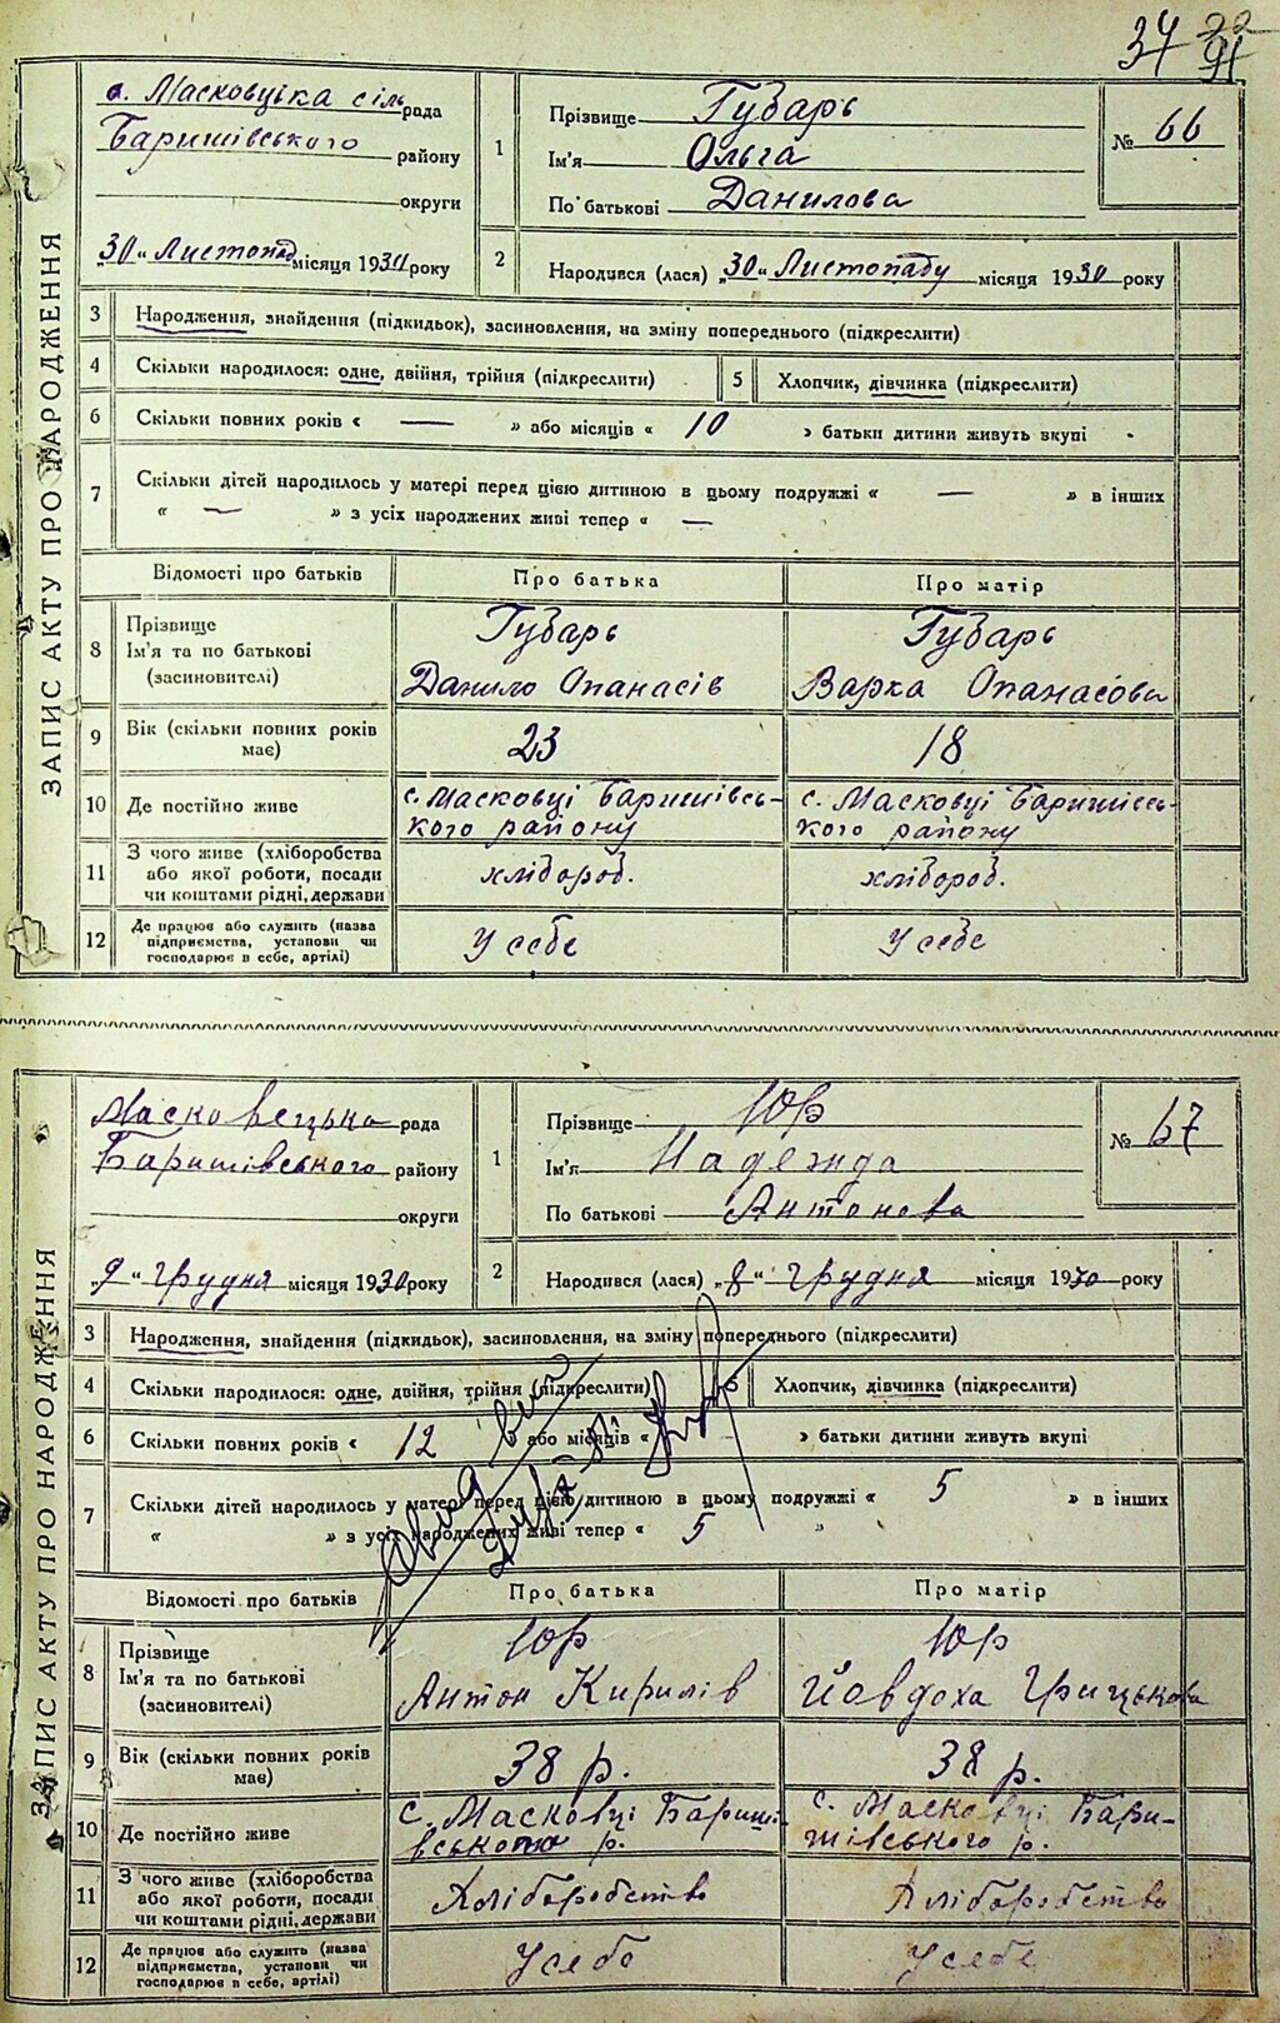 34
22
91
ЗАПИС АКТУ ПРО НАРОДЖЕННЯ
с. Масковцька сіль рада
Баришівського району
округи
„30“ Листопад місяця 1930 року
1
Прізвище Губарь
Ім'я Ольга
По батькові Данилова
№ 66
2
Народився (лася) „30“ Листопаду місяця 1930 року
3 Народження, знайдення (підкидьок), засиновлення, на зміну попереднього (підкреслити)
4 Скільки народилося: одне, двійня, трійня (підкреслити) 5 Хлопчик, дівчинка (підкреслити)
6 Скільки повних років « — » або місяців « 10 » батьки дитини живуть вкупі
7 Скільки дітей народилось у матері перед цією дитиною в цьому подружжі « — » в інших
« — » з усіх народжених живі тепер « —
Відомості про батьків Про батька Про матір
8 Прізвище
Ім'я та по батькові
(засиновителі)
Губарь
Данило Опанасів
Губарь
Варка Опанасова
9 Вік (скільки повних років
має)
23 18
10 Де постійно живе
с. Масковці Баришівсь-
кого району
с. Масковці Баришівсь-
кого району
11 З чого живе (хліборобства
або якої роботи, посади
чи коштами рідні, держави
хлібороб. хлібороб.
12 Де працює або служить (назва
підприємства, установи чи
господарює в себе, артілі)
У себе У себе
ЗАПИС АКТУ ПРО НАРОДЖЕННЯ
Масковецька рада
Баришівського району
округи
„9“ грудня місяця 1930 року
1
Прізвище Юр
Ім'я Надежда
По батькові Антонова
№ 67
2
Народився (лася) „8“ грудня місяця 1930 року
3 Народження, знайдення (підкидьок), засиновлення, на зміну попереднього (підкреслити)
4 Скільки народилося: одне, двійня, трійня (підкреслити) 5 Хлопчик, дівчинка (підкреслити)
6 Скільки повних років « 12 » або місяців « » батьки дитини живуть вкупі
7 Скільки дітей народилось у матері перед цією дитиною в цьому подружжі « 5 » в інших
« » з усіх народжених живі тепер « 5 »
Відомості про батьків Про батька Про матір
8 Прізвище
Ім'я та по батькові
(засиновителі)
Юр
Антон Кирилів
Юр
Йовдоха Грицькова
9 Вік (скільки повних років
має)
38 р. 38 р.
10 Де постійно живе
с. Масковці Бариші-
вського р.
с. Масковці Бари-
шівського р.
11 З чого живе (хліборобства
або якої роботи, посади
чи коштами рідні, держави
Хліборобство Хліборобство
12 Де працює або служить (назва
підприємства, установи чи
господарює в себе, артілі)
У себе У себе